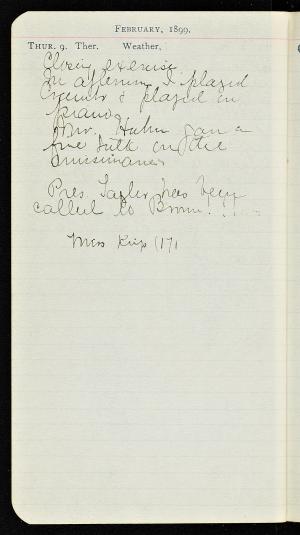 FEBRUARY, 1899.
THUR. 9. Ther. Weather,
Closing exercise
in afternoon I played
& played on
piano.
Mr. Huhn gave a
fine talk on the
missionaries
Pres. Taylor has been
called to Brown!
Miss